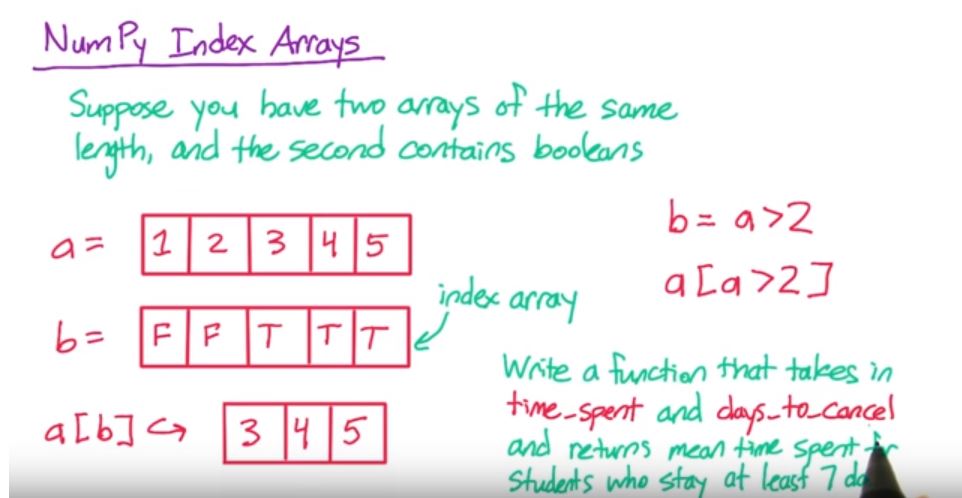 NumPy Index Arrays
Suppose you have two arrays of the same
length, and the second contains booleans
a = 1 2 3 4 5
b = F F T T T
index array
a[b] ↪ 3 4 5
b = a>2
a[a>2]
Write a function that takes in
time_spent and days_to_cancel
and returns mean time spent
students who stay at least 7